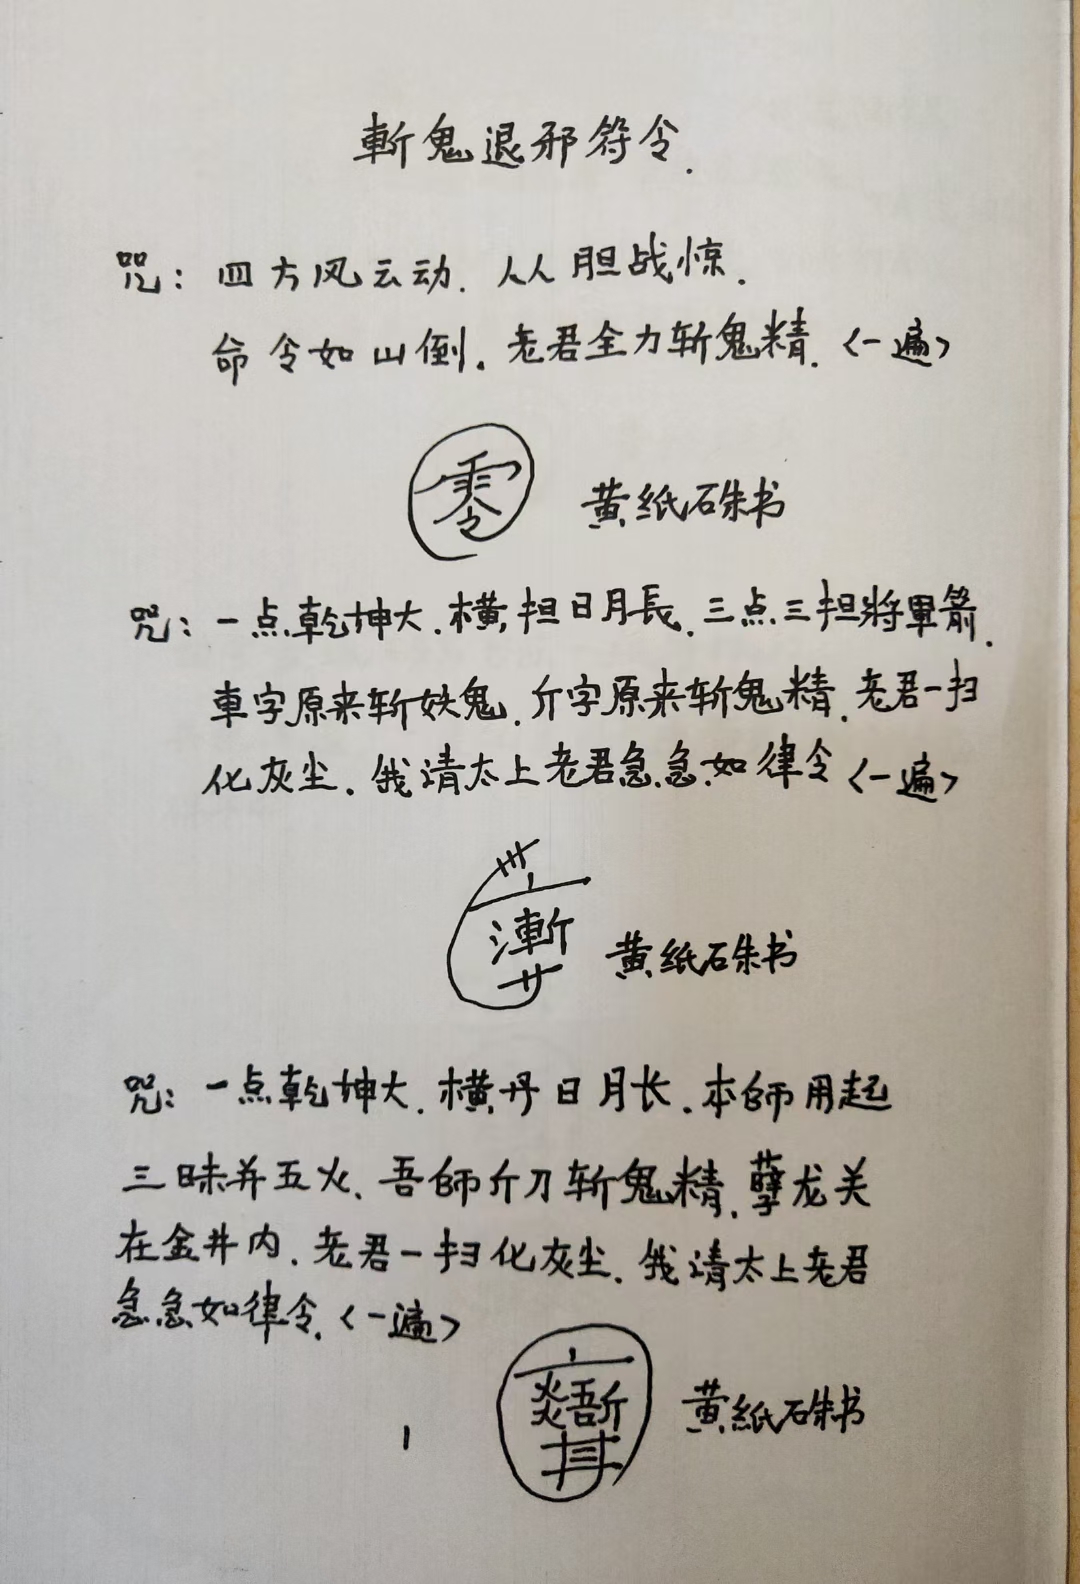 斬鬼退邪符令.
咒:四方风云动.人人胆战惊.
命令如山倒.老君全力斩鬼精.<一遍>
零
黄纸硃书
咒:一点乾坤大.横担日月長.三点三担將軍箭.
車字原来斩妖鬼.斤字原来斩鬼精.老君一扫
化灰尘.我请太上老君急急如律令<一遍>
黄纸硃书
咒:一点乾坤大.横丹日月长.本師用起
三昧并五火、吾師斤刀斩鬼精.孽龙关
在金井内.老君一扫化灰尘.我请太上老君
急急如律令.<一遍>
黄纸硃书
1